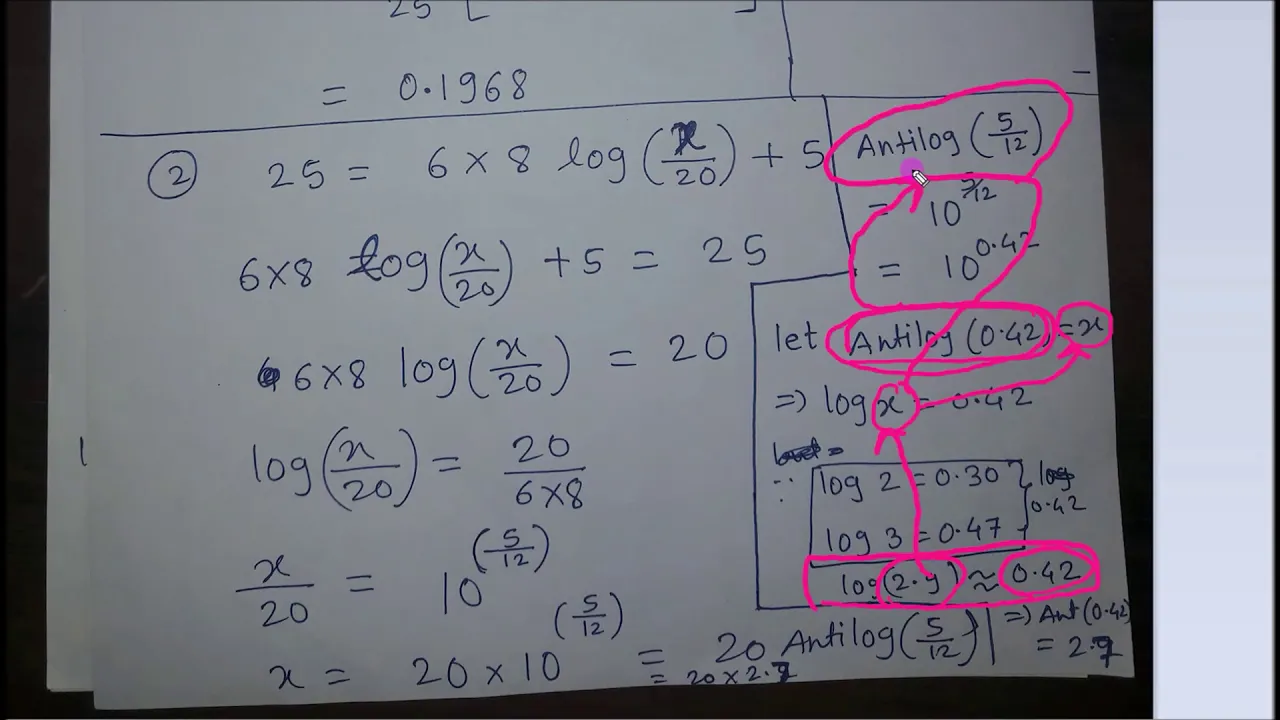 25 [ ]
= 0.1968
② 25 = 6 × 8 log(x/20) + 5
6×8 log(x/20) + 5 = 25
6×8 log(x/20) = 20
log(x/20) = 20/(6×8)
x/20 = 10^(5/12)
x = 20 × 10^(5/12) = 20 Antilog(5/12)
= 20 × 2.
Antilog(5/12)
= 10^5/12
= 10^0.42
let Antilog(0.42) = x
=> log x = 0.42
∵ log 2 = 0.30
log 3 = 0.47
0.42
log(2.y) ≈ 0.42
=> Ant(0.42)
= 2.